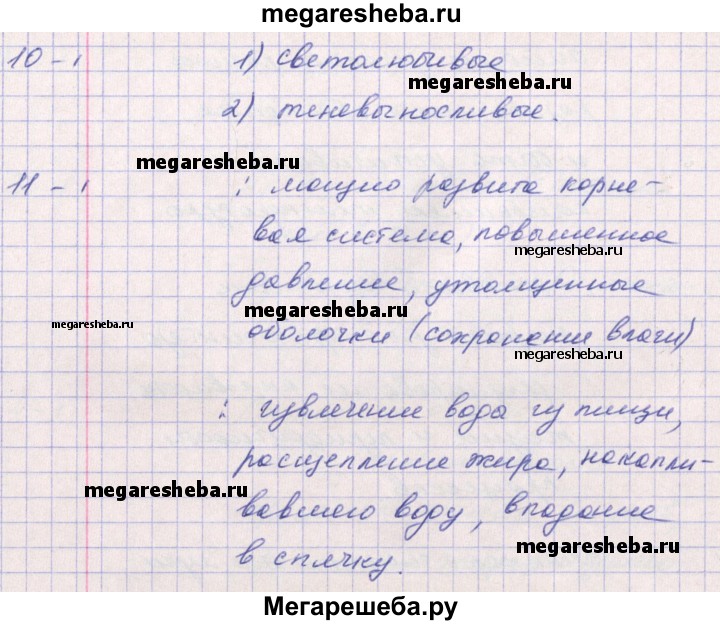 megaresheba.ru
10 - 1) светолюбивые
megaresheba.ru
2) теневыносливые.
megaresheba.ru
11 - : мощно развита корне-
вая система, повышенное
megaresheba.ru
давление, утолщенные
megaresheba.ru
megaresheba.ru
оболочки (сохранение влаги)
megaresheba.ru
: извлечение воды из пищи,
расщепление жира, накапли-
megaresheba.ru
вавшего воду, впадание
megaresheba.ru
в спячку.
Мегарешеба.ру